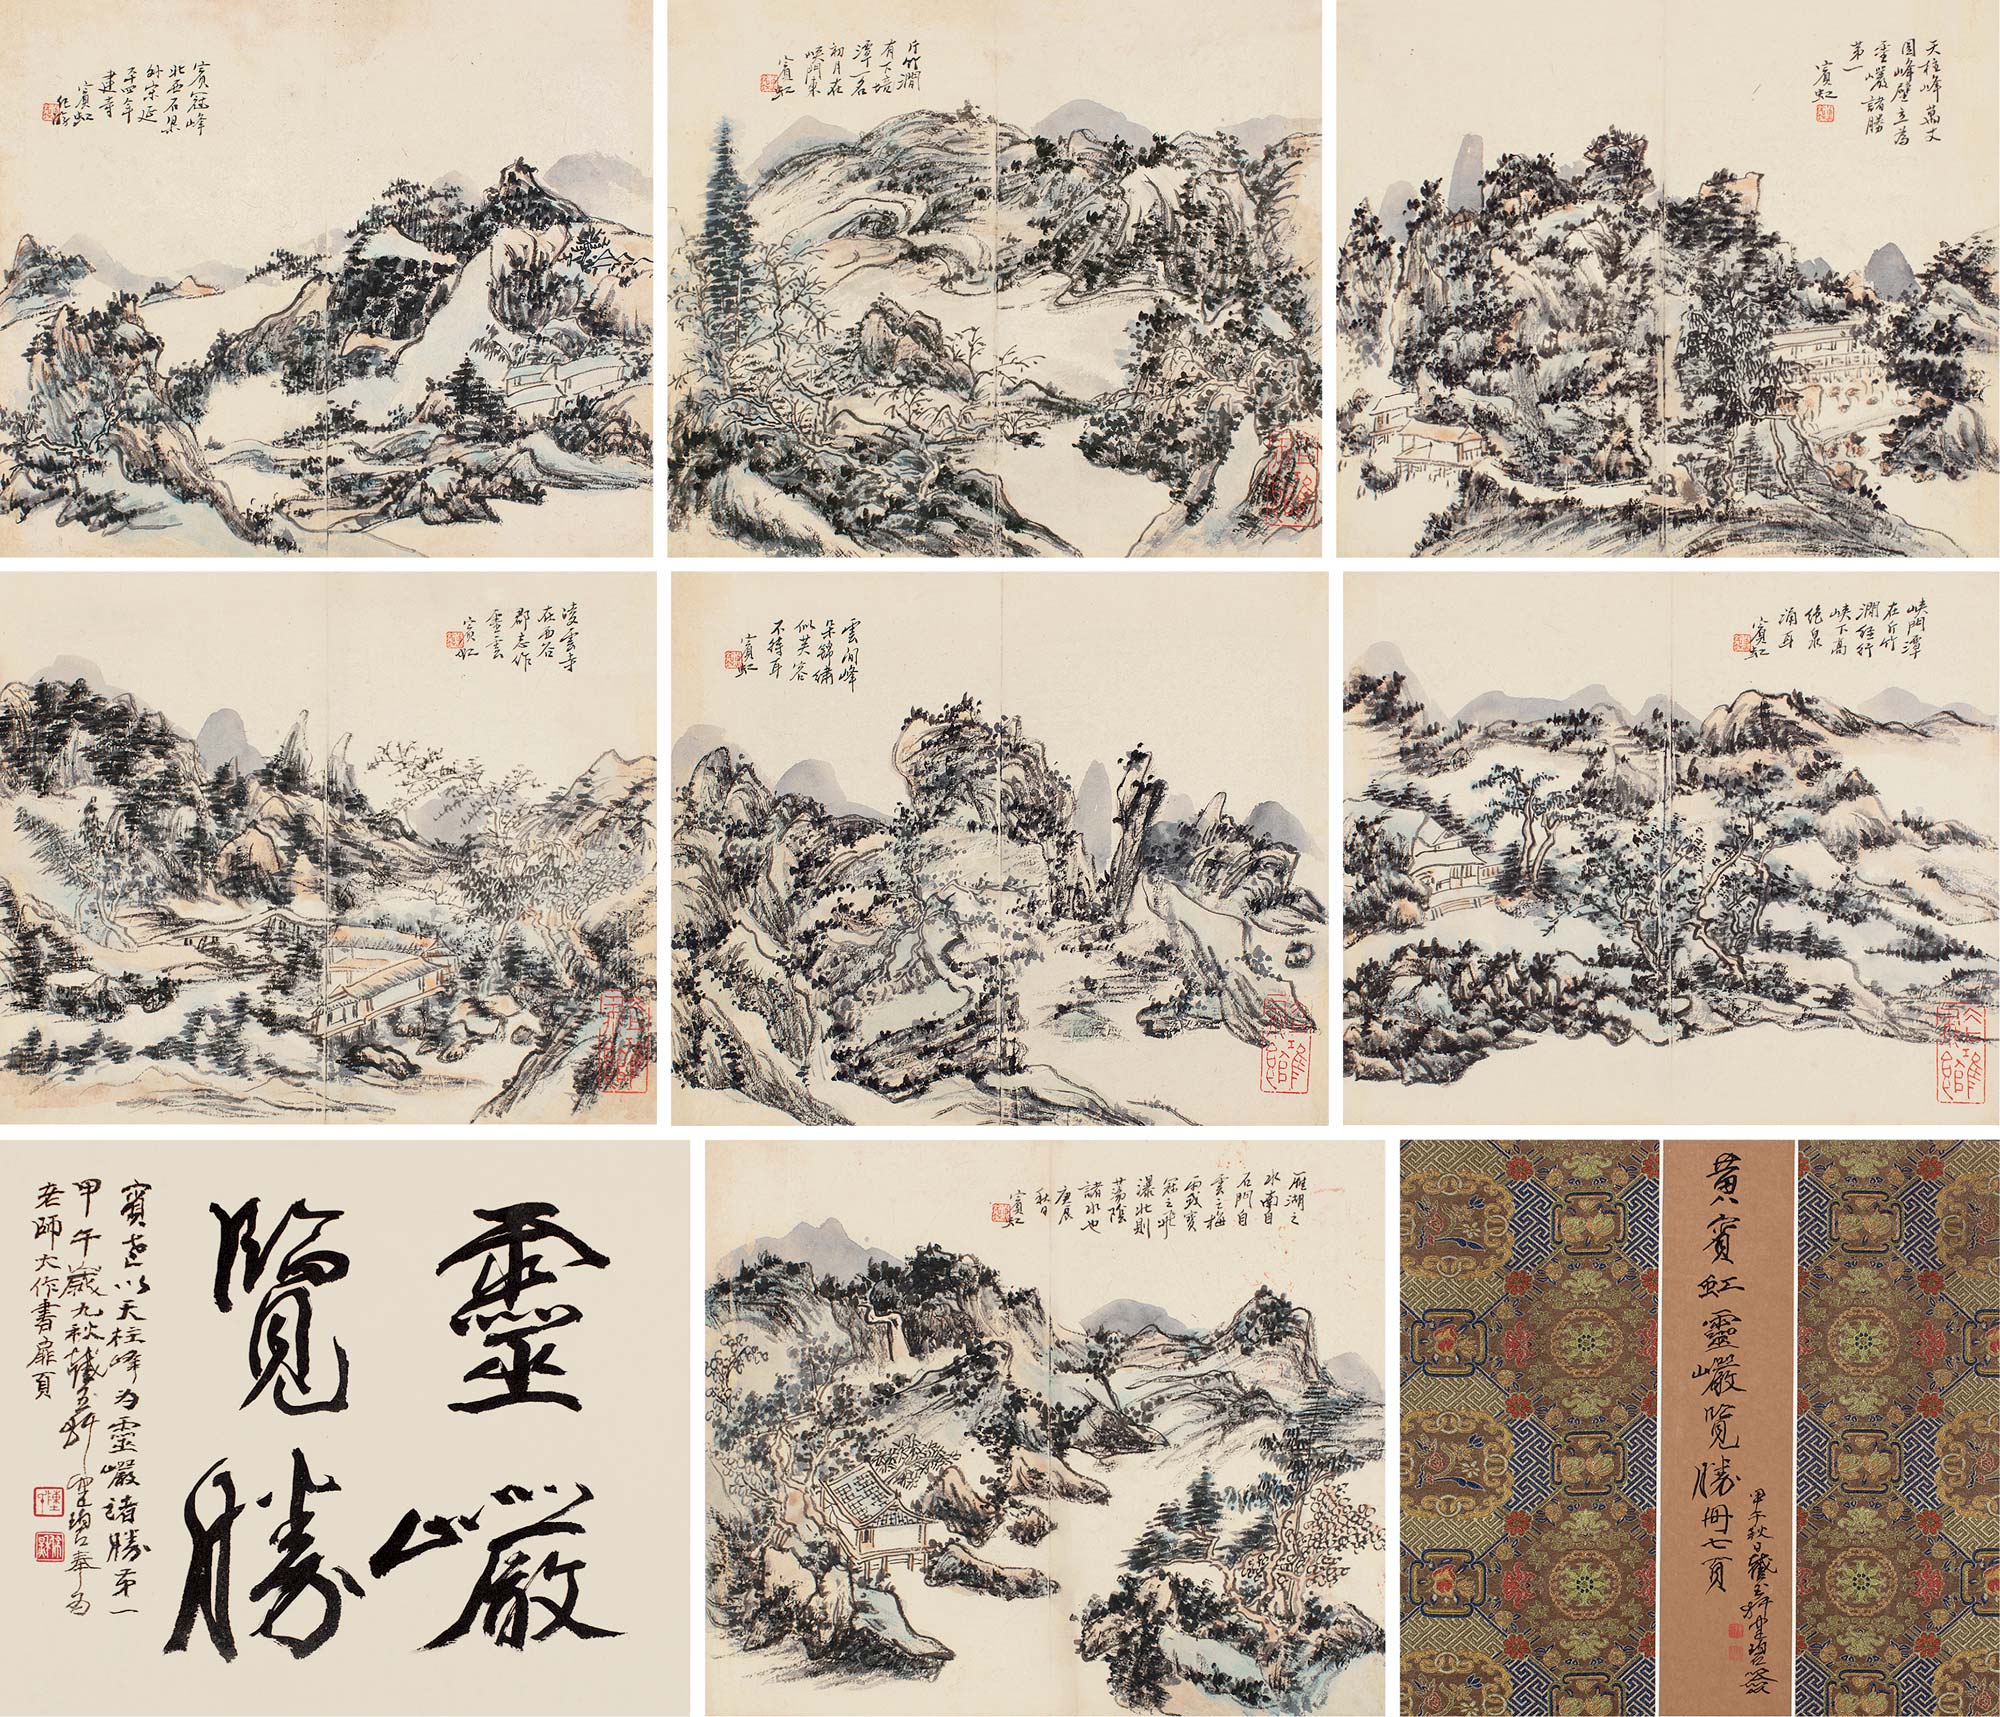 賓冠峰
北西石梁
外宋延
平四年
建寺
賓虹
紀游
斤竹澗
有下培
潭一名
初月在
峽門東
賓虹
天柱峰萬丈
圓峰壁立為
靈巖諸勝
第一
賓虹
凌雲寺
在西谷
郡志作
靈雲
賓虹
雲間峰
朵錦繡
似芙容
不待耳
賓虹
峽門潭
在斤竹
澗經行
峽下高
絕泉
涌耳
賓虹
靈巖
覽勝
賓老以天柱峰為靈巖諸勝第一
甲午歲九秋
老師大作書扉頁
雁湖之
水南自
石門自
雲之梅
雨或寶
冠之飛
瀑北則
蕩陰
諸水也
庚辰
秋日
賓虹
黃賓虹靈巖覽勝冊七頁
甲午秋日